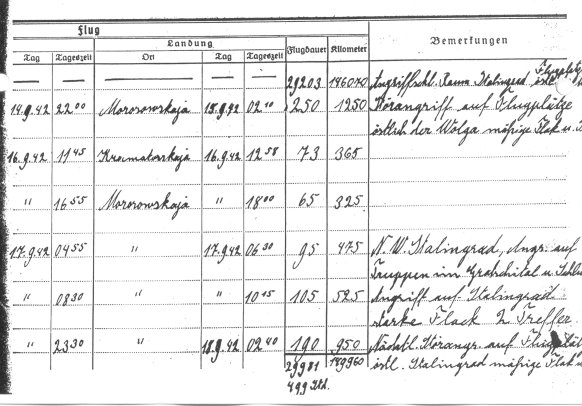 Flug
Landung
Flugdauer Kilometer
Bemerkungen
Tag Tageszeit Ort Tag Tageszeit
29203 186070 Angriffschl. Raum Stalingrad, Flugplätz
östl.
14.9.42 22 00 Morosowskaja 15.9.42 02 10 250 1250 Störangriff auf Flugplätze
östlich der Wolga mäßige Flak u.
16.9.42 11 45 Kramatorskaja 16.9.42 12 58 73 365
" 16 55 Morosowskaja " 18 00 65 325
17.9.42 04 55 " 17.9.42 06 30 95 475 N.W. Stalingrad, Angr. auf
Truppen im u.
" 08 30 " " 10 15 105 525 Angriff auf Stalingrad
starke Flack 2 Treffer.
" 23 30 " 18.9.42 02 40 190 950 Nächtl. Störangr. auf
östl. Stalingrad mäßige Flak u
29981 189960
499 Std.